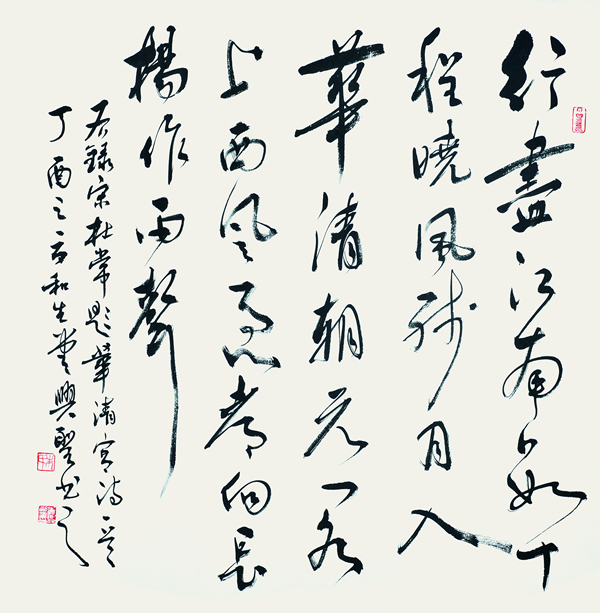 行盡江南數十
程曉風殘月入
華清朝元閣
上西風急都向長
楊作雨聲
右錄宋杜常題華清宮詩一首
丁酉之 和生堂興聖書之